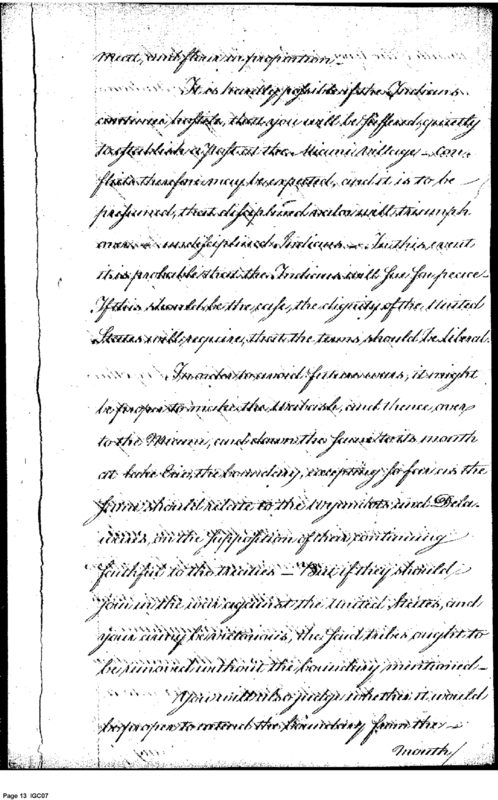 meat, and flour in proportion—
It is hardly possible if the Indians
continue hostile, that you will be suffered quietly
to establish a Post at the Miami Village – Con-
flicts therefore may be expected, and it is to be
presumed, that disciplined valor will triumph
over – undisciplined Indians – In this event
it is probable that the Indians will sue for peace–
If this should be the case, the dignity of the United
States will require, that the terms should be liberal.
In order to avoid future wars, it might
be proper to make the Wabash, and thence, over
to the Miami, and down the same to its mouth
at Lake Erie, the boundary, excepting so far as the
same should relate to the Wyandots, and Dela-
wares, on the supposition of their continuing
faithful to the treaties – But if they should
join in the war against the United States, and
your army be victorious, the said tribes ought to
be removed without the boundary mentioned –
You will also judge whether it would
be proper to extend the boundary from the –
mouth/
Page 13 IGC07